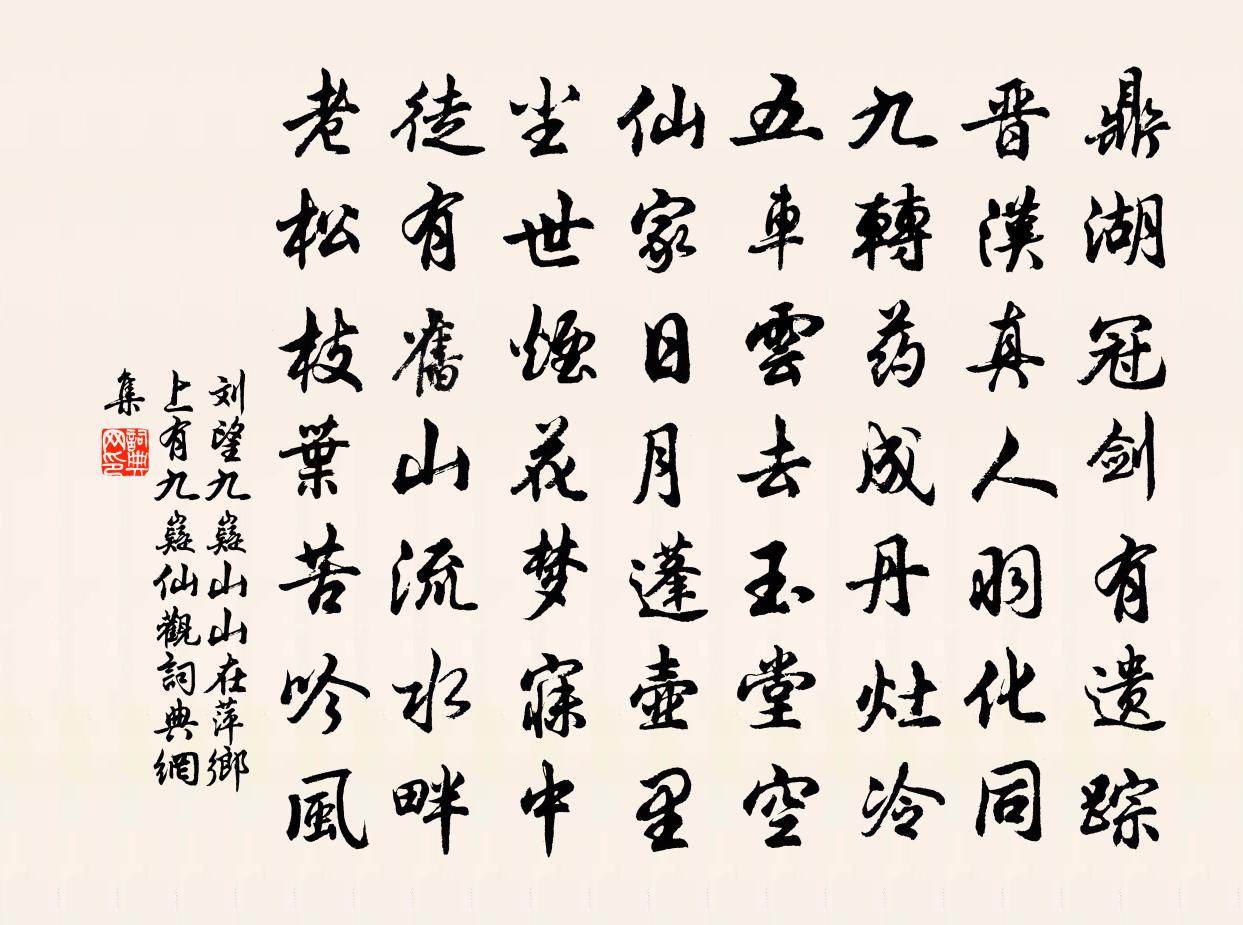 鼎湖冠剑有遗踪
晋漢真人羽化同
九轉药成丹灶冷
五車雲去玉堂空
仙家日月蓬壺里
尘世煙花梦寐中
徒有舊山流水畔
老松枝葉苦吟風
刘望九嶷山山在萍鄉
上有九嶷仙觀詞典網
集
詞典網印